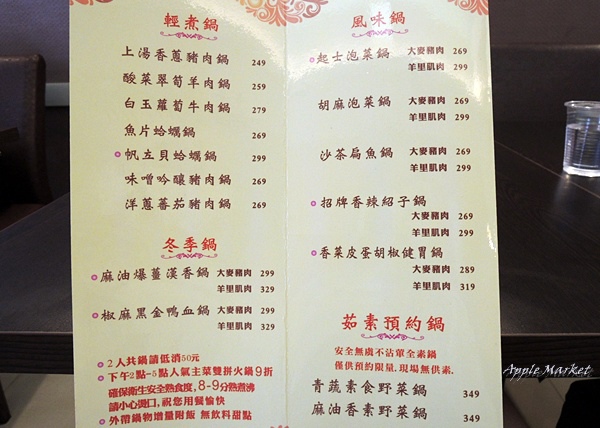 輕煮鍋
上湯香蔥豬肉鍋 249
酸菜翠筍羊肉鍋 259
白玉蘿蔔牛肉鍋 279
魚片蛤蠣鍋 269
帆立貝蛤蠣鍋 299
味噌吟釀豬肉鍋 269
洋蔥蕃茄豬肉鍋 269
冬季鍋
麻油爆薑漢香鍋 大麥豬肉 299
羊里肌肉 329
椒麻黑金鴨血鍋 大麥豬肉 299
羊里肌肉 329
2人共鍋請低消50元
下午2點-5點人氣主菜雙拼火鍋9折
確保衛生安全熟食度, 8-9分熟煮沸
請小心燙口, 祝您用餐愉快
外帶鍋物增量附飯 無飲料甜點
風味鍋
起士泡菜鍋 大麥豬肉 269
羊里肌肉 299
胡麻泡菜鍋 大麥豬肉 269
羊里肌肉 299
沙茶扁魚鍋 大麥豬肉 269
羊里肌肉 299
招牌香辣紹子鍋
大麥豬肉 269
羊里肌肉 299
香菜皮蛋胡椒健胃鍋
大麥豬肉 289
羊里肌肉 319
茹素預約鍋
安全無虞不沾單全素鍋
僅供預約限量. 現場無供素.
青蔬素食野菜鍋 349
麻油香素野菜鍋 349
Apple Market